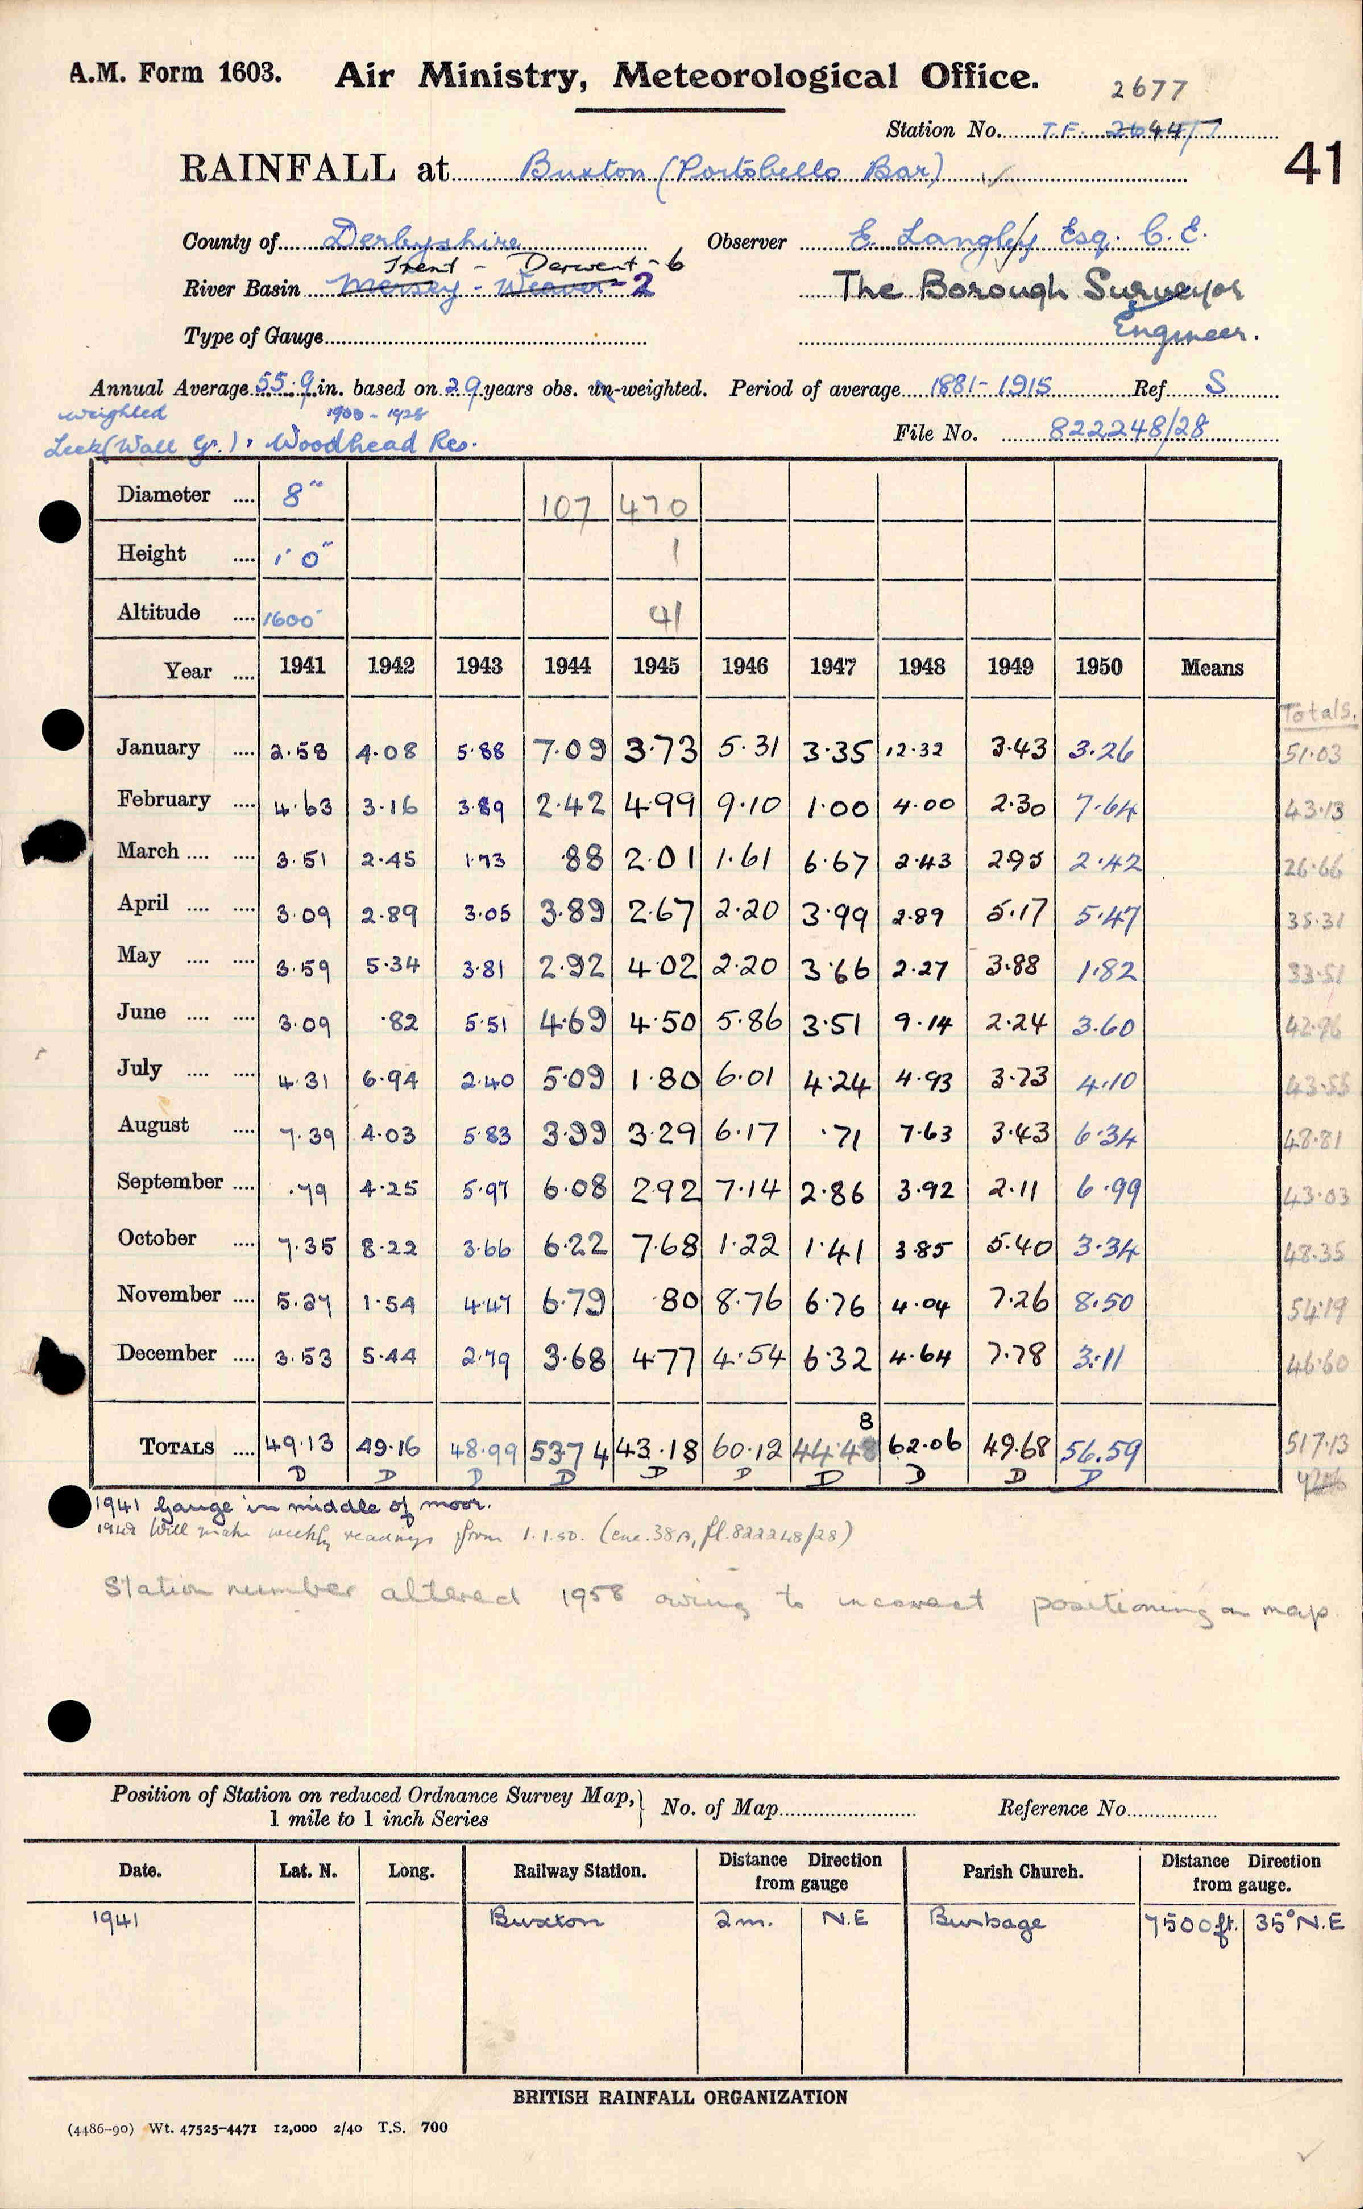 A.M. Form 1603. Air Ministry, Meteorological Office.
2677
Station No. T.F. 2644/7
41
RAINFALL at Buxton (Portobello Bar)
County of Derbyshire Observer E. Langley Esq. C.E.
Trent - Derwent - 6
River Basin Mersey - Weaver - 2 The Borough Surveyor
Type of Gauge Engineer.
Annual Average 55.9 in. based on 29 years obs. un-weighted. Period of average 1881-1915 Ref S
weighted 1900-1928
Leek (Wall Gr.): Woodhead Res. File No. 822248/28
Diameter 8" 107 470
Height 1' 0" 1
Altitude 1600' 41
Year 1941 1942 1943 1944 1945 1946 1947 1948 1949 1950 Means
Totals.
January 2.58 4.08 5.88 7.09 3.73 5.31 3.35 12.32 3.43 3.26 51.03
February 4.63 3.16 3.89 2.42 4.99 9.10 1.00 4.00 2.30 7.64 43.13
March 3.51 2.45 1.73 .88 2.01 1.61 6.67 2.43 2.95 2.42 26.66
April 3.09 2.89 3.05 3.89 2.67 2.20 3.99 2.89 5.17 5.47 35.31
May 3.59 5.34 3.81 2.92 4.02 2.20 3.66 2.27 3.88 1.82 33.51
June 3.09 .82 5.51 4.69 4.50 5.86 3.51 9.14 2.24 3.60 42.96
July 4.31 6.94 2.40 5.09 1.80 6.01 4.24 4.93 3.73 4.10 43.55
August 7.39 4.03 5.83 3.99 3.29 6.17 .71 7.63 3.43 6.34 48.81
September .79 4.25 5.97 6.08 2.92 7.14 2.86 3.92 2.11 6.99 43.03
October 7.35 8.22 3.66 6.22 7.68 1.22 1.41 3.85 5.40 3.34 48.35
November 5.27 1.54 4.47 6.79 .80 8.76 6.76 4.04 7.26 8.50 54.19
December 3.53 5.44 2.79 3.68 4.77 4.54 6.32 4.64 7.78 3.11 46.60
8
TOTALS 49.13 49.16 48.99 53.74 43.18 60.12 44.48 62.06 49.68 56.59 517.13
D D D D D D D D D D
1941 Gauge in middle of moor.
1948 Will make weekly readings from 1.1.50. (enc. 38A, fl. 822248/28)
Station number altered 1958 owing to incorrect positioning on map
Position of Station on reduced Ordnance Survey Map, } No. of Map Reference No.
1 mile to 1 inch Series
Date. Lat. N. Long. Railway Station. Distance Direction from gauge Parish Church. Distance Direction from gauge.
1941 Buxton 2m. N.E Burbage 7500ft. 35° N.E
BRITISH RAINFALL ORGANIZATION
(4486-90) Wt. 47525-4471 12,000 2/40 T.S. 700